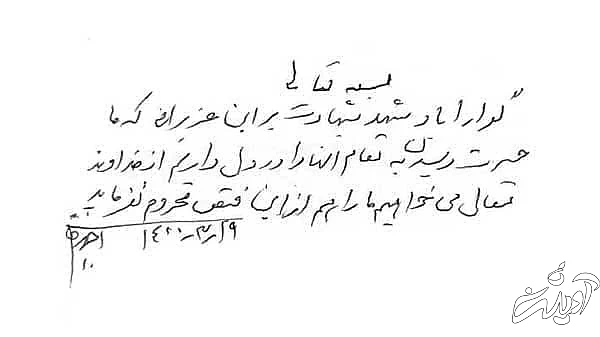 بسمه تعالی
گوارا باد شهد شهادت بر این عزیزان که ما
حسرت رسیدن به مقام آنها را در دل داریم از خداوند
متعال می خواهیم ما را هم از این فیض محروم نفرماید
۱۴۰۰/۳/۲۹